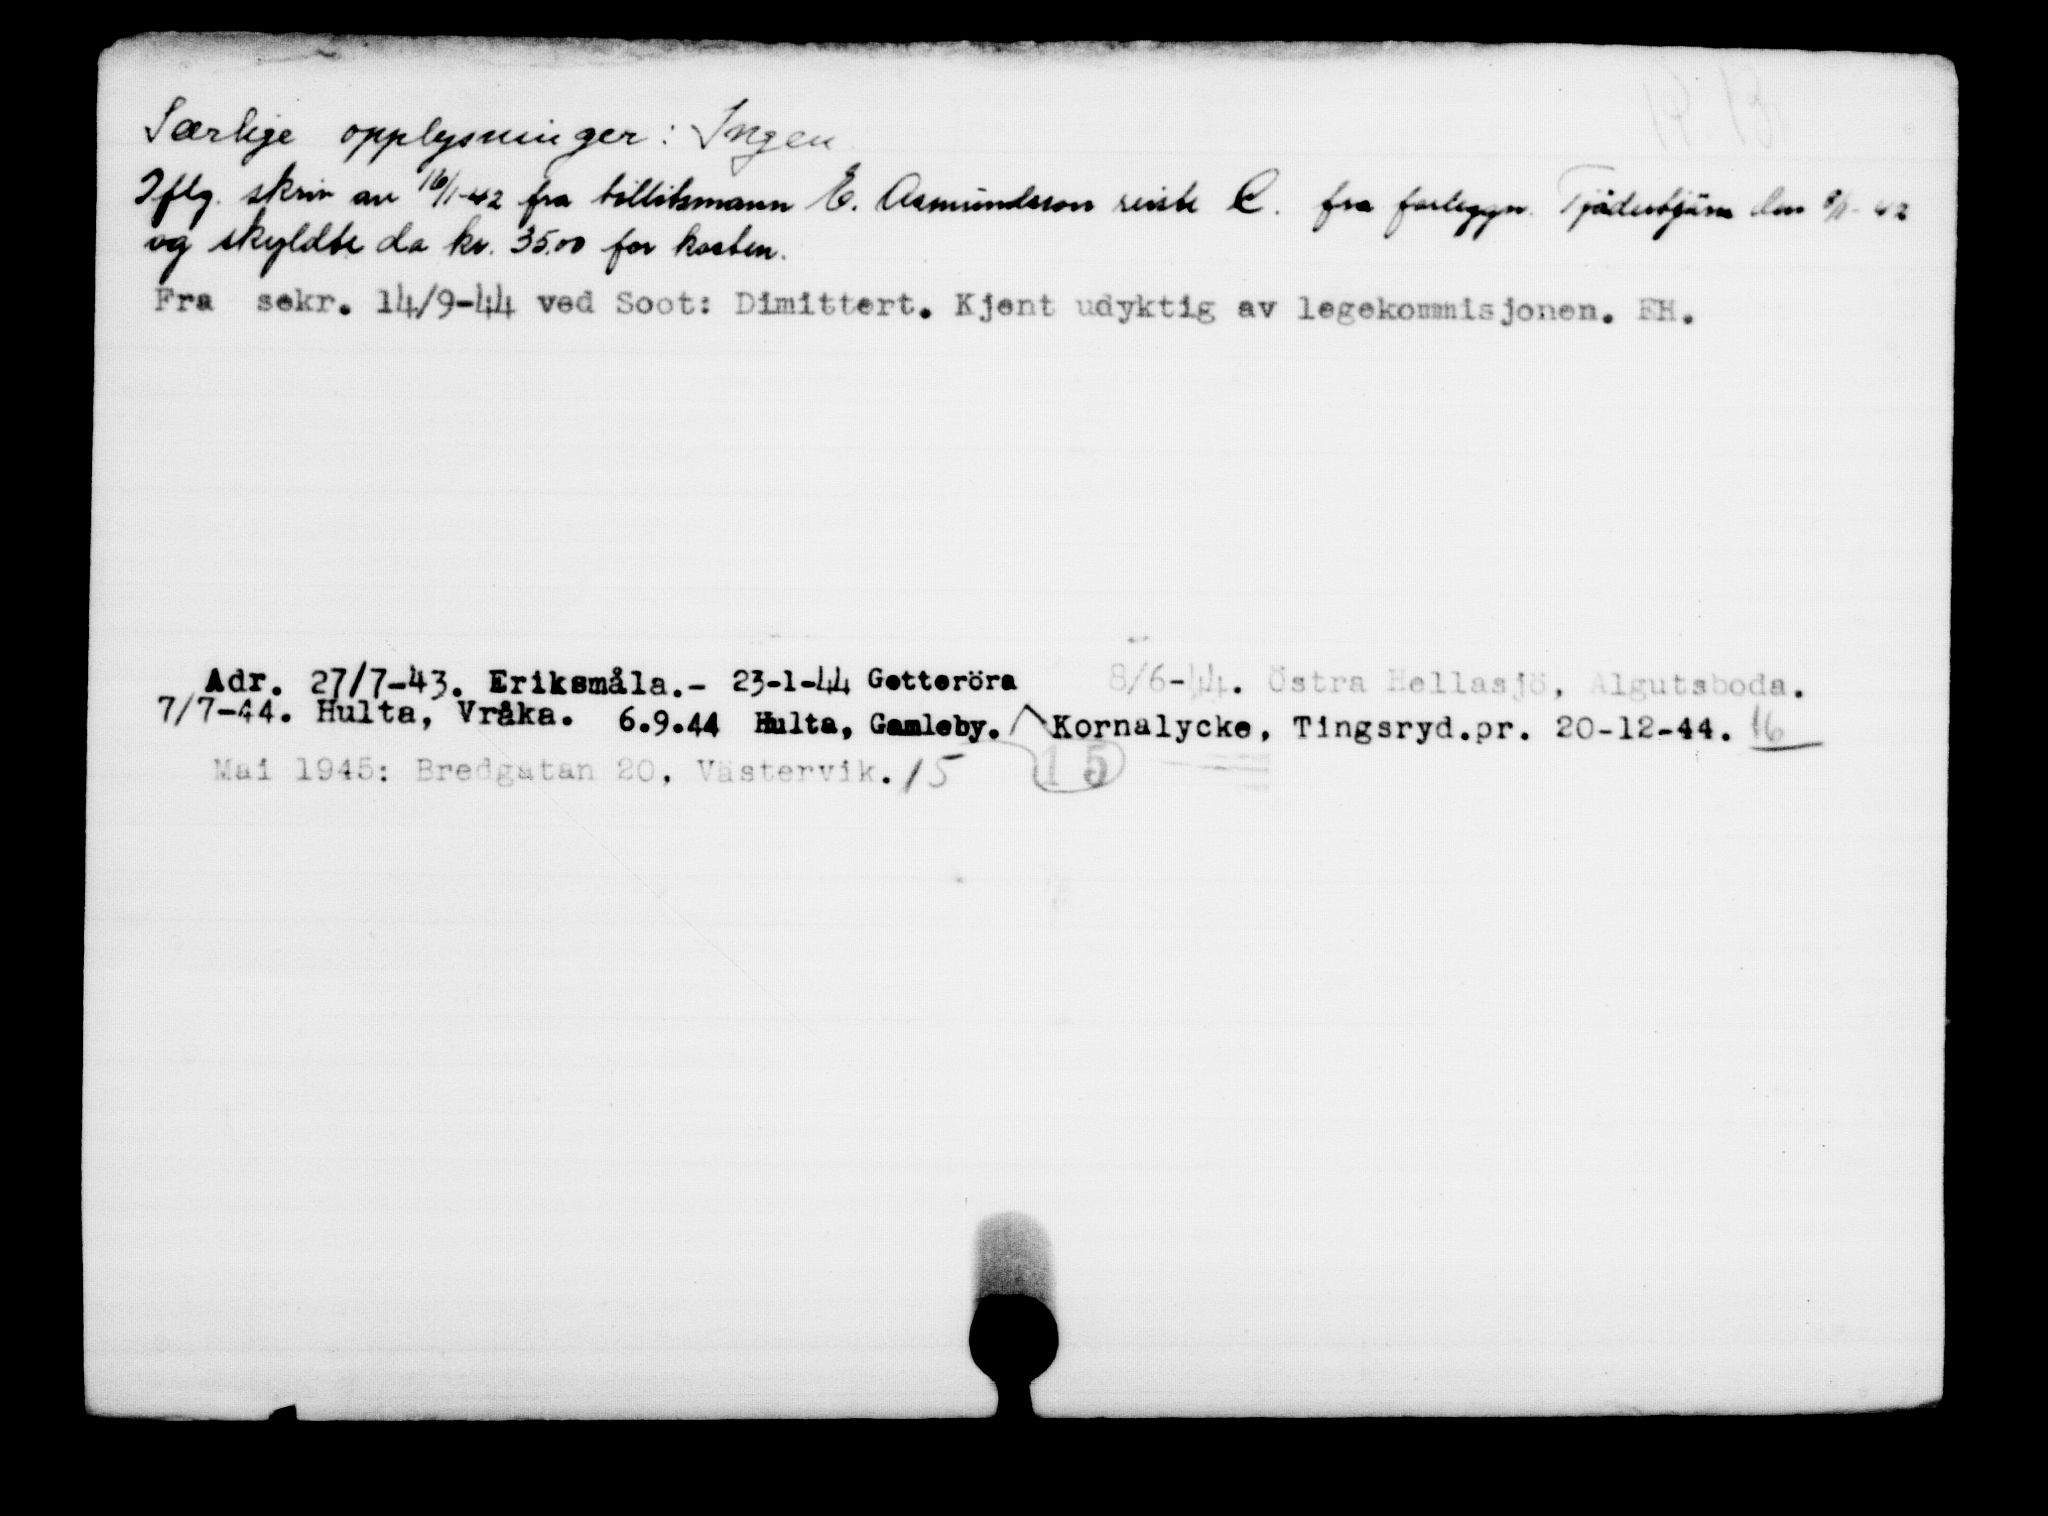 Særlige opplysninger: Ingen
Iflg. skriv av 16/1-42 fra tillitsmann E. Asmundsson reiste C. fra forleggn. Tjäderstjärn den 8/1-42
og skyldte da kr. 35.00 for kosten.
Fra sekr. 14/9-44 ved Soot: Dimittert. Kjent udyktig av legekommisjonen. EH.
Adr. 27/7-43. Eriksmåla.- 23-1-44 Getteröra 8/6-44. Östra Hellasjö, Algutsboda.
7/7-44. Hulta, Vråka. 6.9.44 Hulta, Gamleby. Kornalycke, Tingsryd.pr. 20-12-44. 16
Mai 1945: Bredgatan 20, Västervik. 15 15